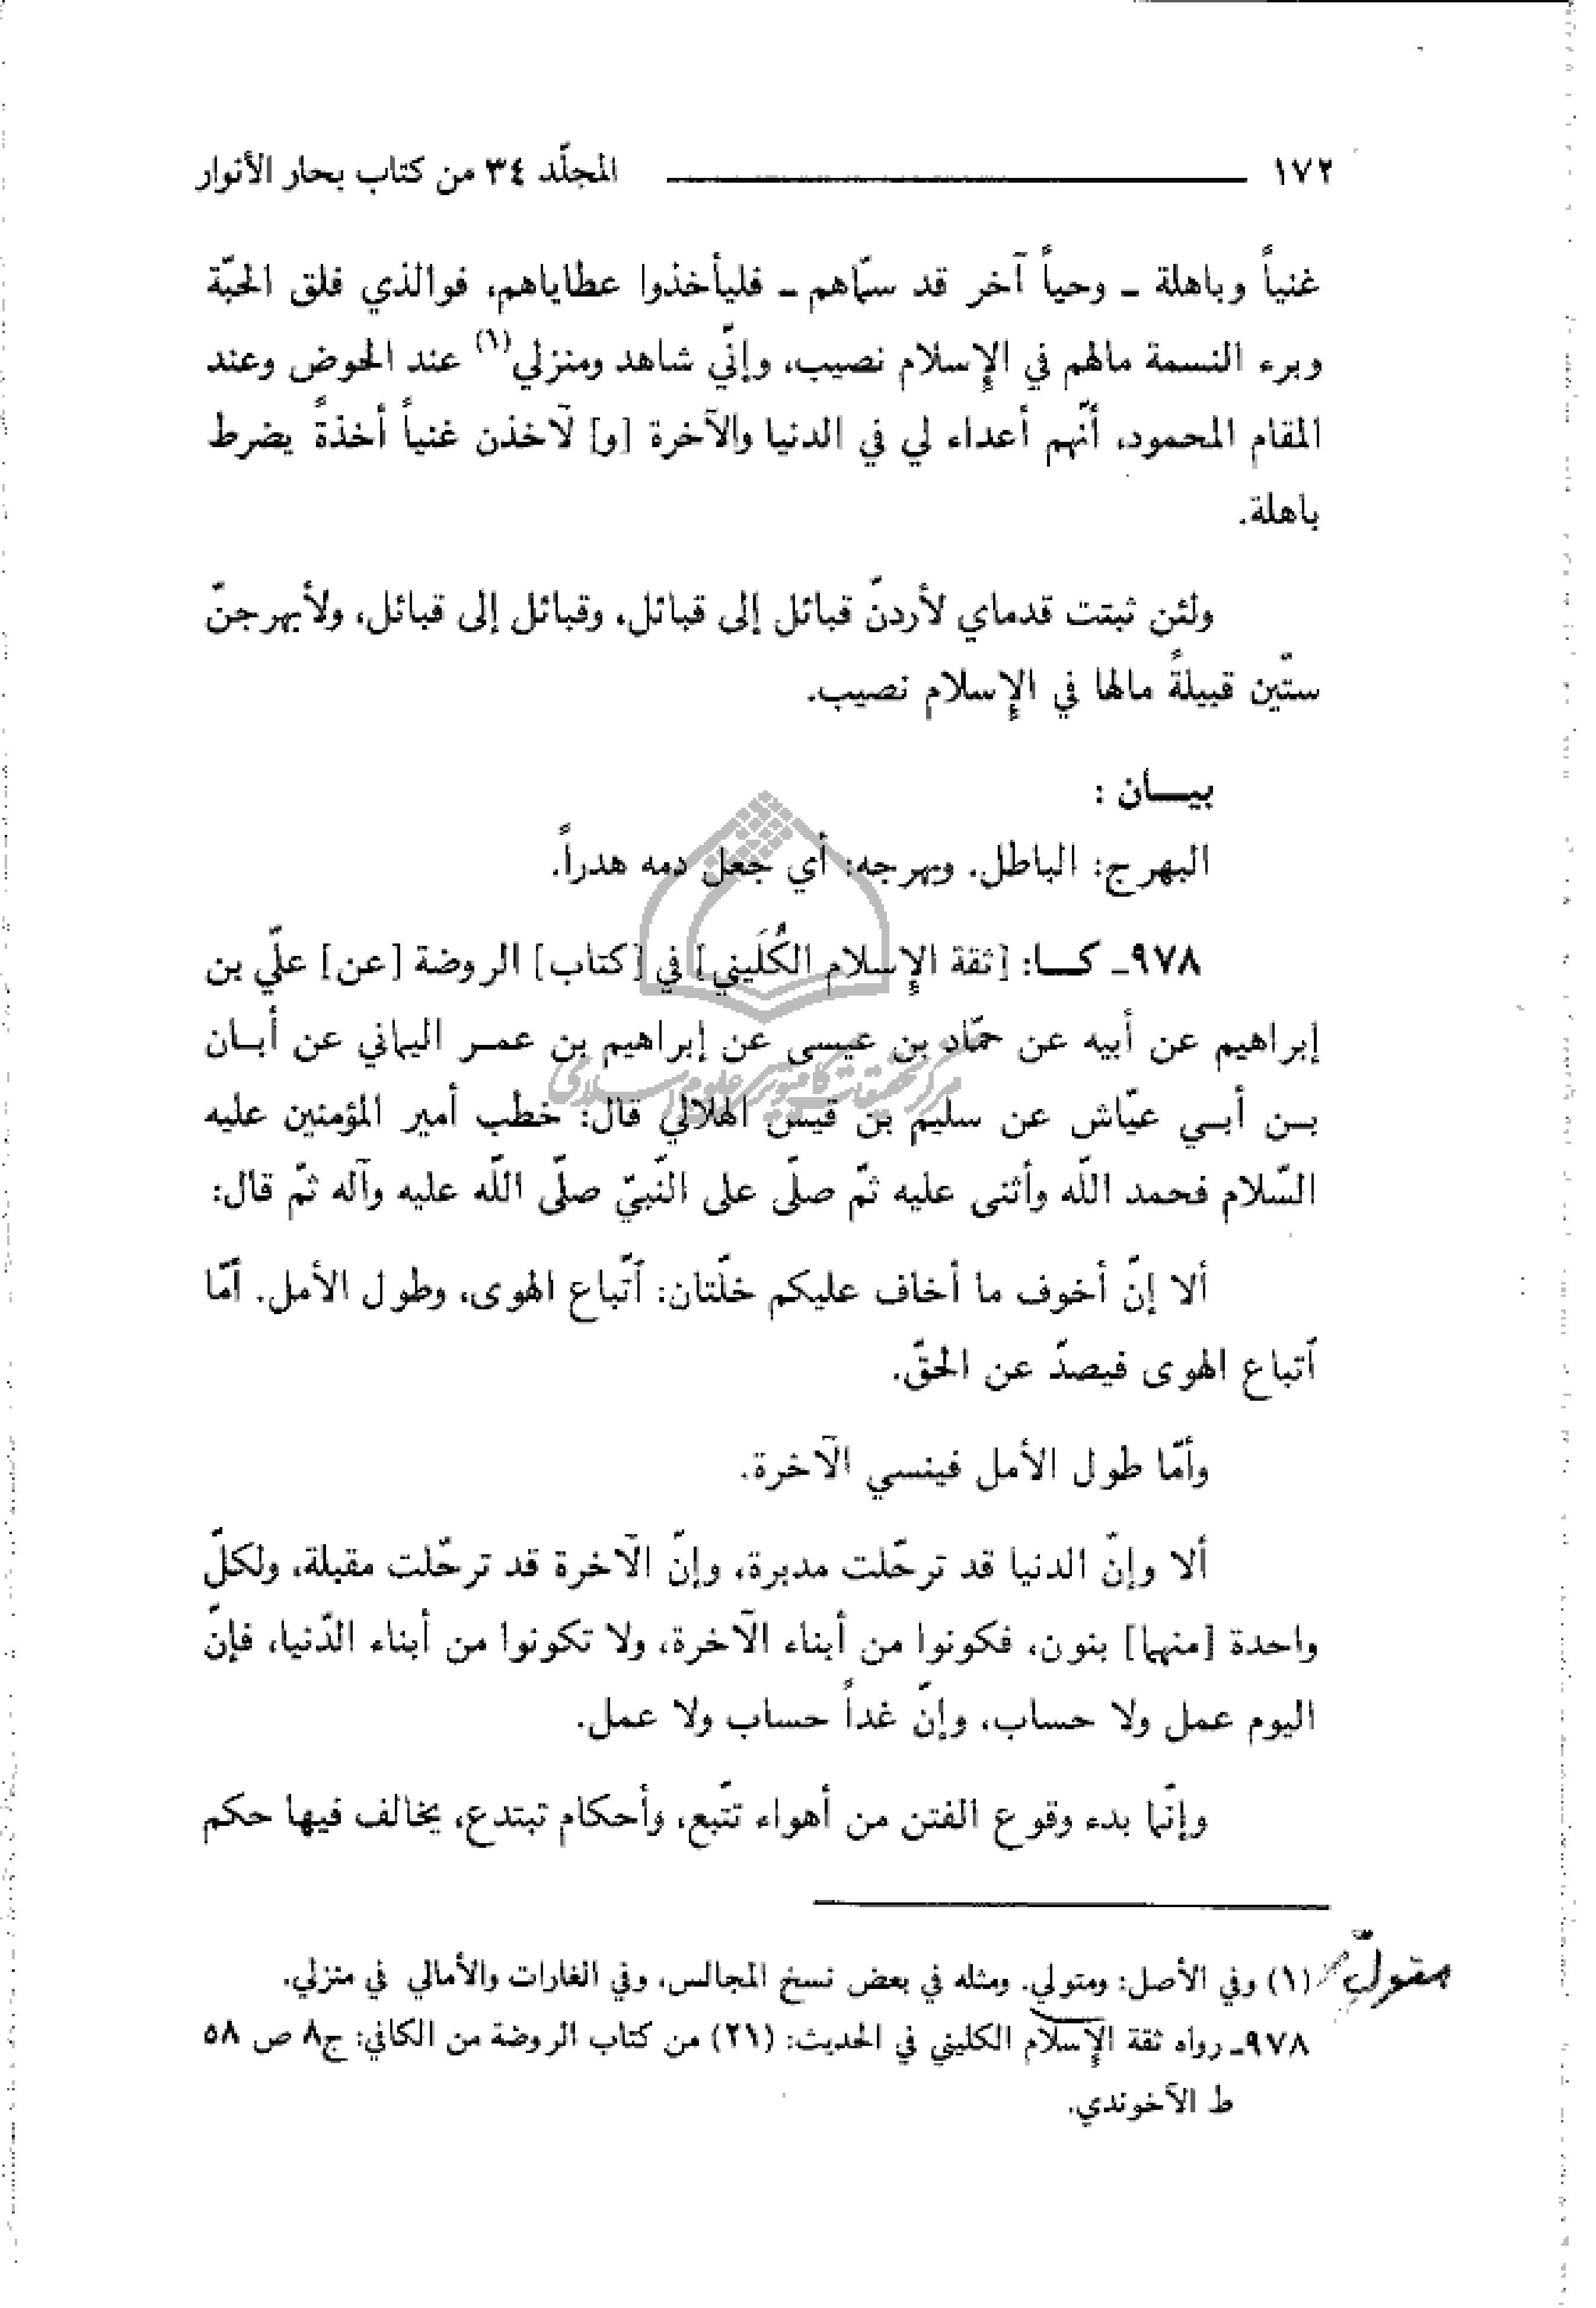 ١٧٢ المجلّد ٣٤ من كتاب بحار الأنوار
غنياً وباهلة ـ وحياً آخر قد سمّاهم ـ فليأخذوا عطاياهم، فوالذي فلق الحبّة
وبرء النسمة مالهم في الإسلام نصيب، وإنّي شاهد ومنزلي(١) عند الحوض وعند
المقام المحمود، أنّهم أعداء لي في الدنيا والآخرة [و] لآخذن غنياً أخذةً يضرط
باهلة.
ولئن ثبتت قدماي لأردنّ قبائل إلى قبائل، وقبائل إلى قبائل، ولأبهرجنّ
ستّين قبيلةً مالها في الإسلام نصيب.
بيـــان :
البهرج: الباطل. وبهرجه: أي جعل دمه هدراً.
٩٧٨ـ كـــا: [ثقة الإسلام الكُلَيني] في [كتاب] الروضة [عن] علّي بن
إبراهيم عن أبيه عن حمّاد بن عيسى عن إبراهيم بن عمـر اليماني عن أبـان
بـن أبـي عيّاش عن سليم بن قيس الهلالي قال: خطب أمير المؤمنين عليه
السّلام فحمد اللّه وأثنى عليه ثمّ صلّى على النّبيّ صلّى اللّه عليه وآله ثمّ قال:
ألا إنّ أخوف ما أخاف عليكم خلّتان: اتّباع الهوى، وطول الأمل. أمّا
اتباع الهوى فيصدّ عن الحقّ.
وأمّا طول الأمل فينسي الآخرة.
ألا وإنّ الدنيا قد ترحّلت مدبرة، وإنّ الآخرة قد ترحّلت مقبلة، ولكلّ
واحدة [منهما] بنون، فكونوا من أبناء الآخرة، ولا تكونوا من أبناء الدّنيا، فإنّ
اليوم عمل ولا حساب، وإنّ غداً حساب ولا عمل.
وإنّما بدء وقوع الفتن من أهواء تتّبع، وأحكام تبتدع، يخالف فيها حكم
(١) وفي الأصل: ومتولي. ومثله في بعض نسخ المجالس، وفي الغارات والأمالي في منزلي.
٩٧٨ـ رواه ثقة الإسلام الكليني في الحديث: (٢١) من كتاب الروضة من الكافي: ج٨ ص ٥٨
ط الآخوندي.